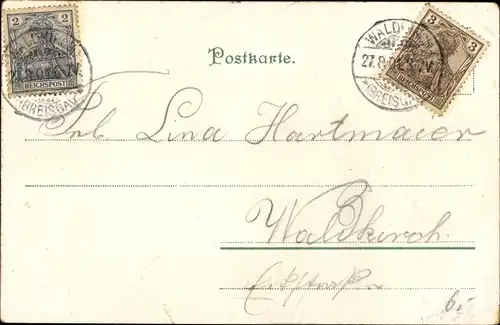 2
REICHSPOST
(BREISGAU)
Postkarte.
WALDK
27.8.0
(BREISG
3
REICHSPOST
Frl. Lina Hartmaier
Waldkirch.
6,-